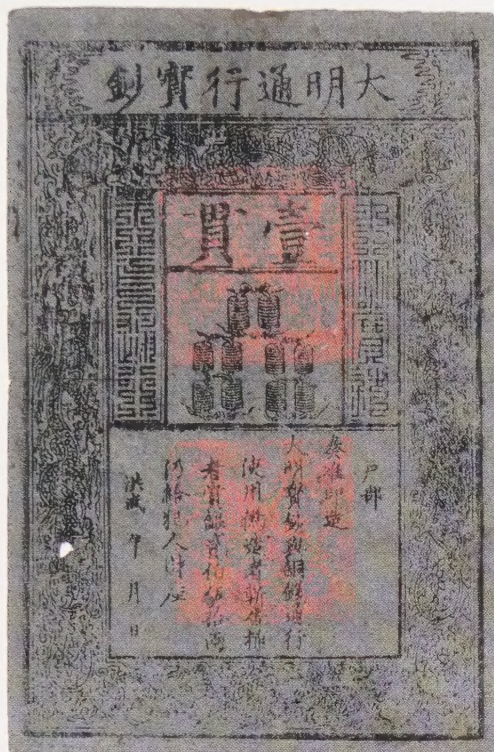 大明通行寶鈔
壹貫
户部
奏准印造
大明寶鈔與銅錢通行
使用偽造者斬告捕
者賞銀貳伯伍拾兩
仍給犯人財產
洪武 年 月 日